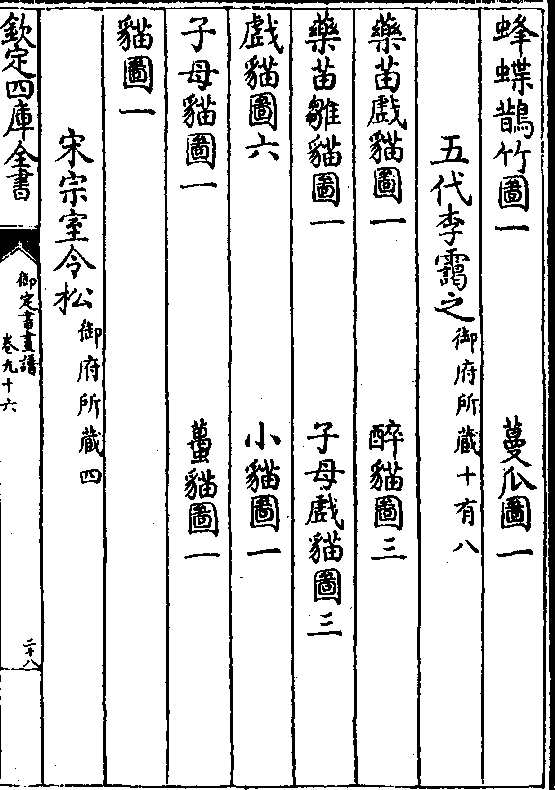 蜂蝶鵲竹圖一　蔓瓜圖一
五代李靄之御府所藏十有八
藥苗戲貓圖一　醉貓圖三
藥苗雛貓圖一　子母戲貓圖三
戲貓圖六　小貓圖一
子母貓圖一　蠆貓圖一
貓圖一
宋宗室令松御府所藏四
欽定四庫全書
御定書畫譜
卷九十六
二十八